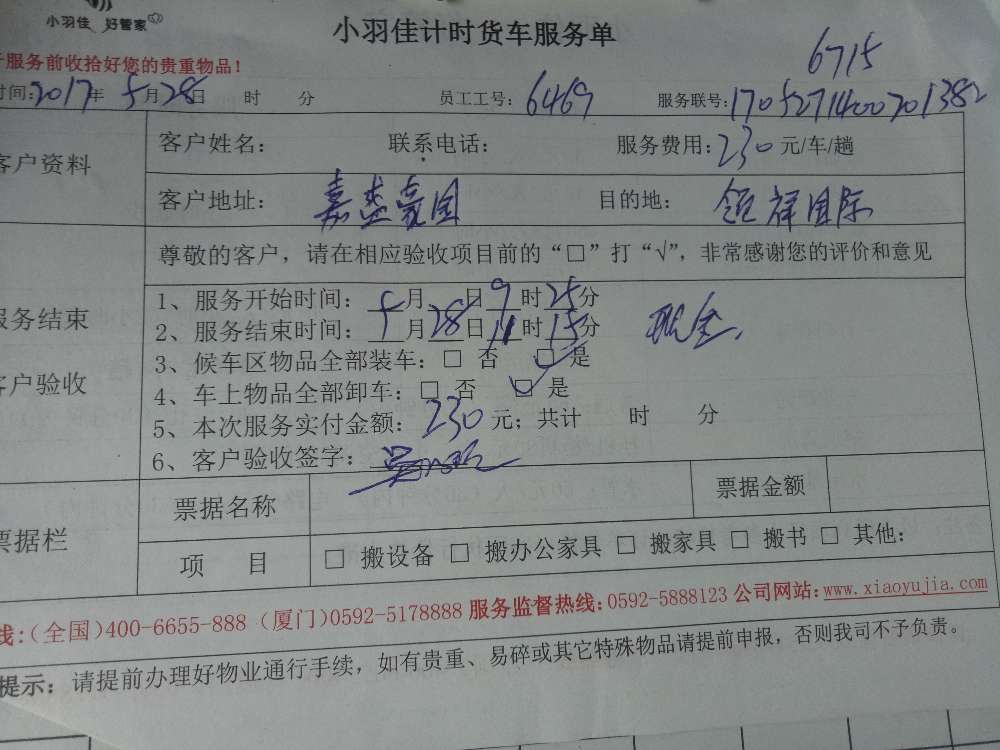 小羽佳 好管家
小羽佳计时货车服务单
服务前收拾好您的贵重物品!
6715
时间:2017年 5月28日 时 分 员工工号: 6469 服务联号: 1705271400701382
客户资料
客户姓名: 联系电话: 服务费用: 230 元/车/趟
客户地址: 嘉盛豪园 目的地: 领祥国际
尊敬的客户，请在相应验收项目前的“□”打“√”，非常感谢您的评价和意见
服务结束
客户验收
1、服务开始时间: 5月28日9时25分
2、服务结束时间: 5月28日11时15分 现金
3、候车区物品全部装车: □ 否 ☑ 是
4、车上物品全部卸车: □ 否 ☑ 是
5、本次服务实付金额: 230 元; 共计 时 分
6、客户验收签字:
票据栏
票据名称 票据金额
项 目 □ 搬设备 □ 搬办公家具 □ 搬家具 □ 搬书 □ 其他:
线:(全国)400-6655-888 (厦门)0592-5178888 服务监督热线:0592-5888123 公司网站:www.xiaoyujia.com
提示: 请提前办理好物业通行手续，如有贵重、易碎或其它特殊物品请提前申报，否则我司不予负责。